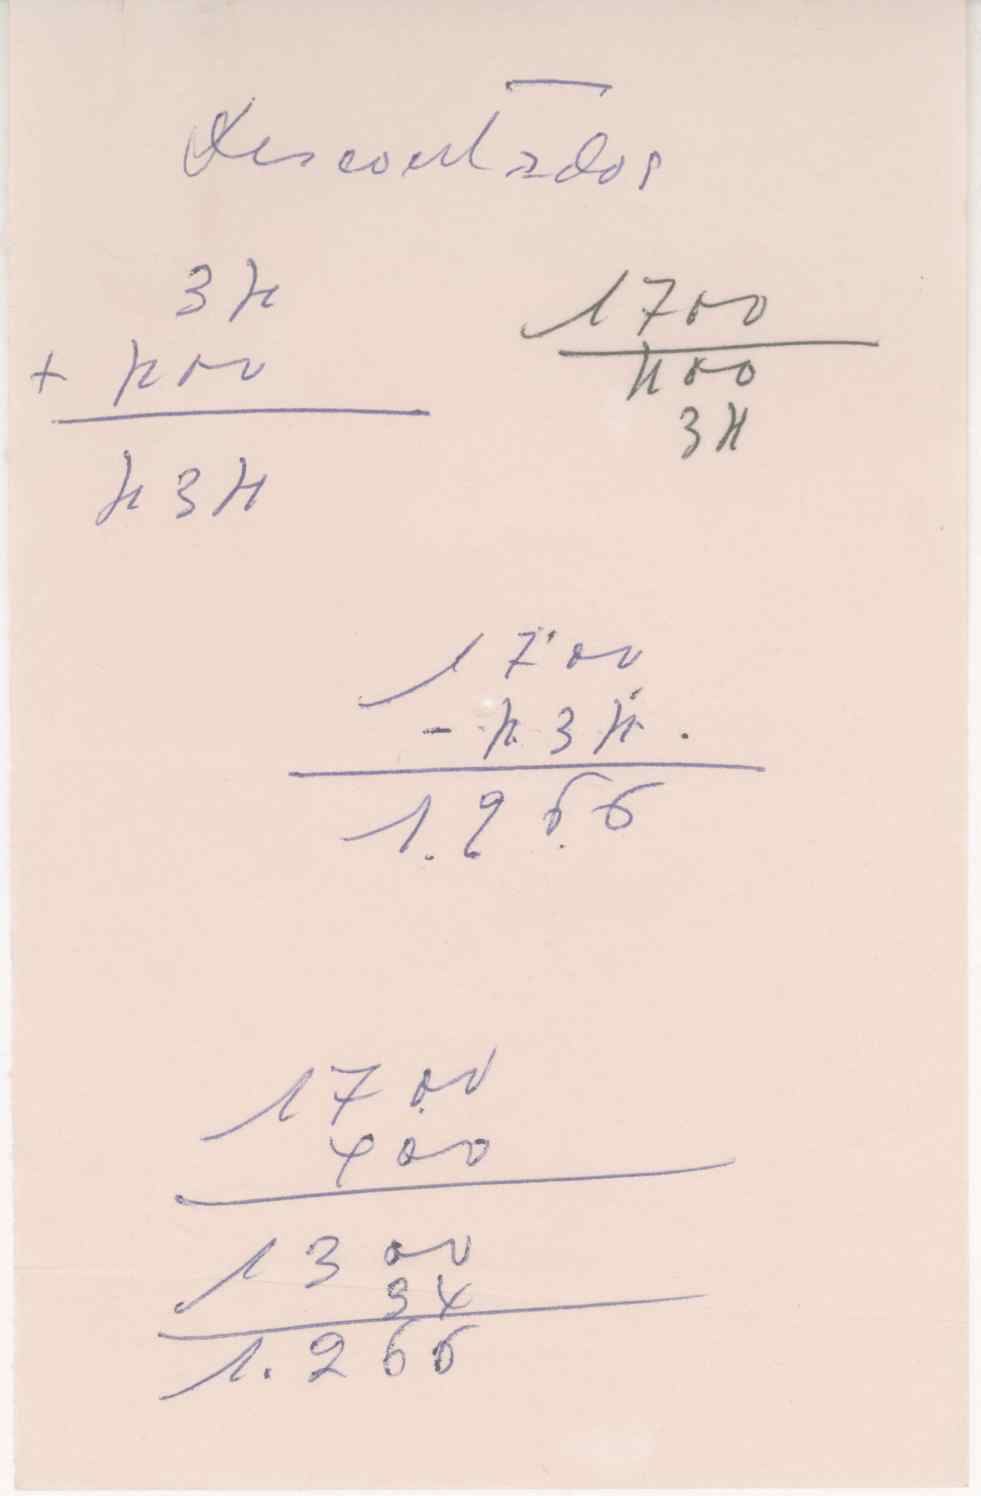 Descontados
34
+ 400
434
1700
400
34
1700
- 434.
1.266
1700
400
1300
34
1.266